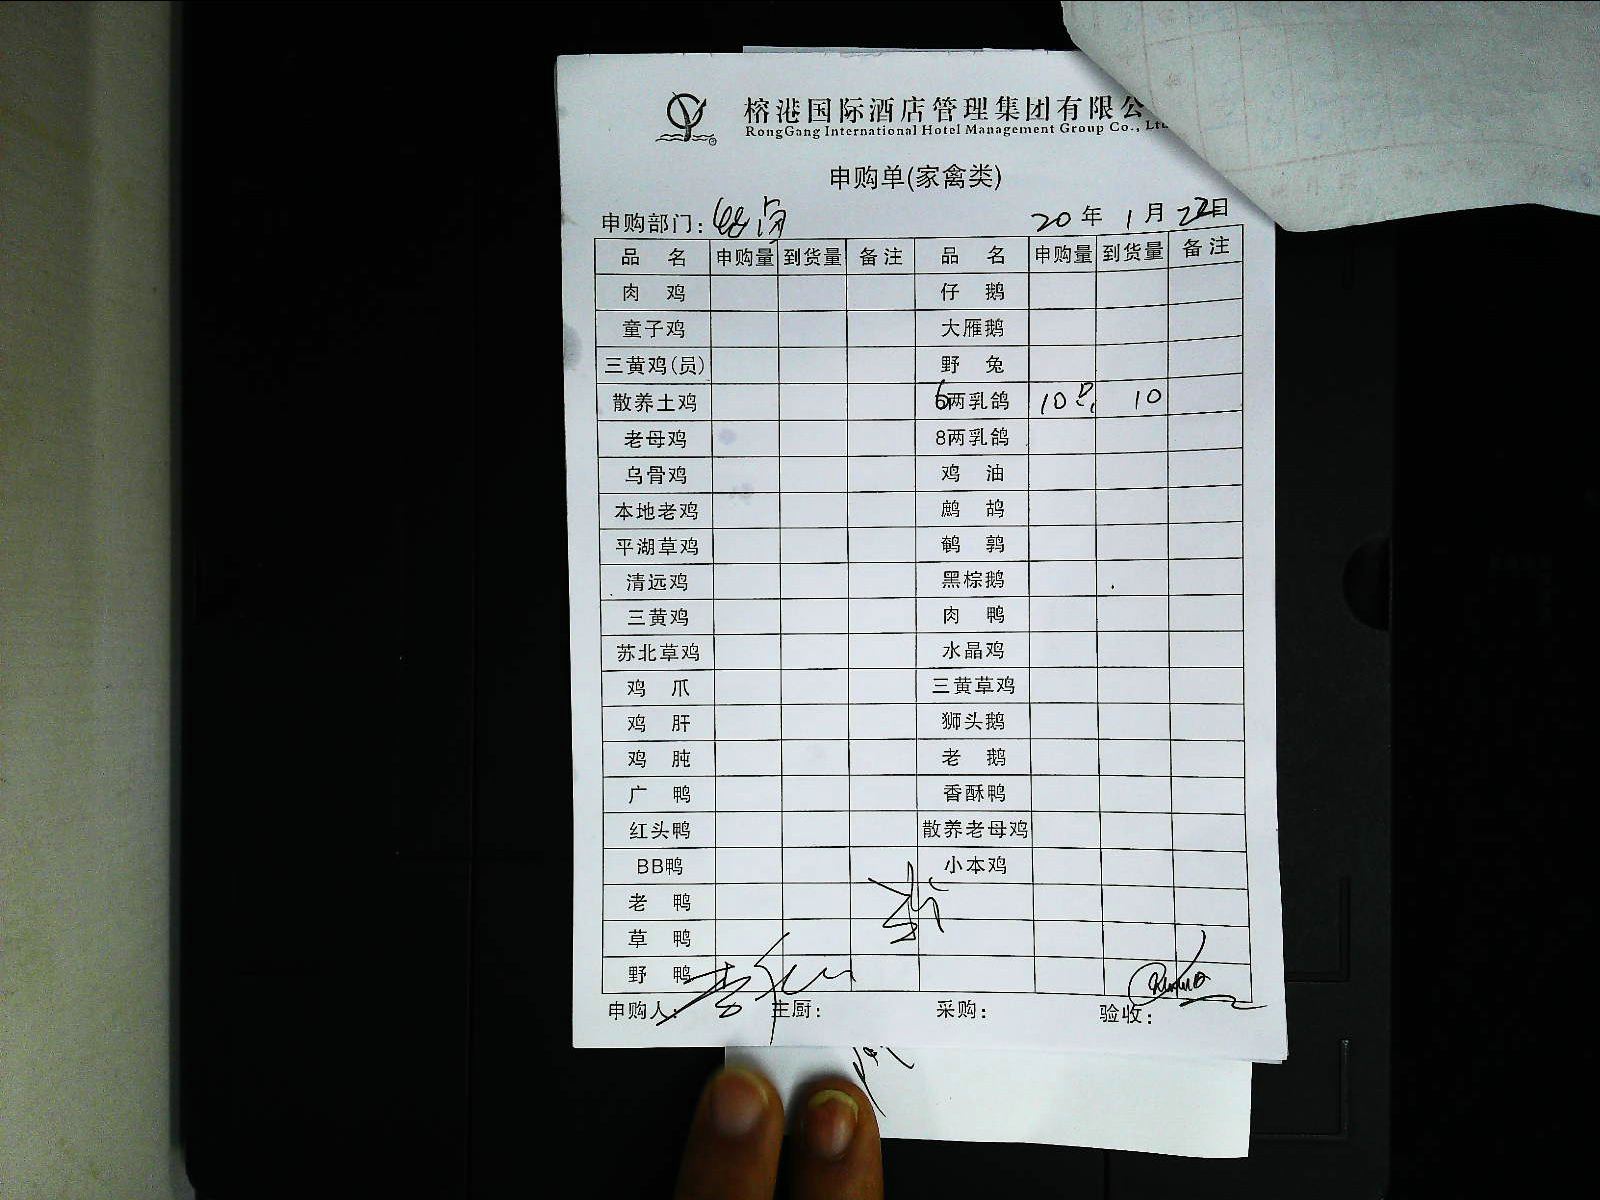 榕港国际酒店管理集团有限公
RongGang International Hotel Management Group Co., Lt
申购单(家禽类)
申购部门: 20年 1月 22日
品 名 申购量 到货量 备注 品 名 申购量 到货量 备注
肉 鸡 仔 鹅
童子鸡 大雁鹅
三黄鸡(员) 野 兔
散养土鸡 6两乳鸽 10只 10
老母鸡 8两乳鸽
乌骨鸡 鸡 油
本地老鸡 鹧 鸪
平湖草鸡 鹌 鹑
清远鸡 黑棕鹅
三黄鸡 肉 鸭
苏北草鸡 水晶鸡
鸡 爪 三黄草鸡
鸡 肝 狮头鹅
鸡 肫 老 鹅
广 鸭 香酥鸭
红头鸭 散养老母鸡
BB鸭 小本鸡
老 鸭
草 鸭
野 鸭
申购人: 主厨: 采购: 验收: